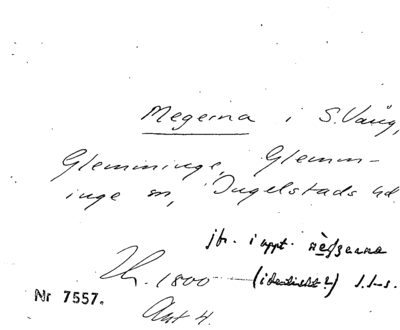 Megerna i S. Vång,
Glemminge, Glemm-
inge sn, Ingelstads hd.
jfr. i uppt.
Lh. 1800 (identiskt?)
Nr 7557.
Akt 4.